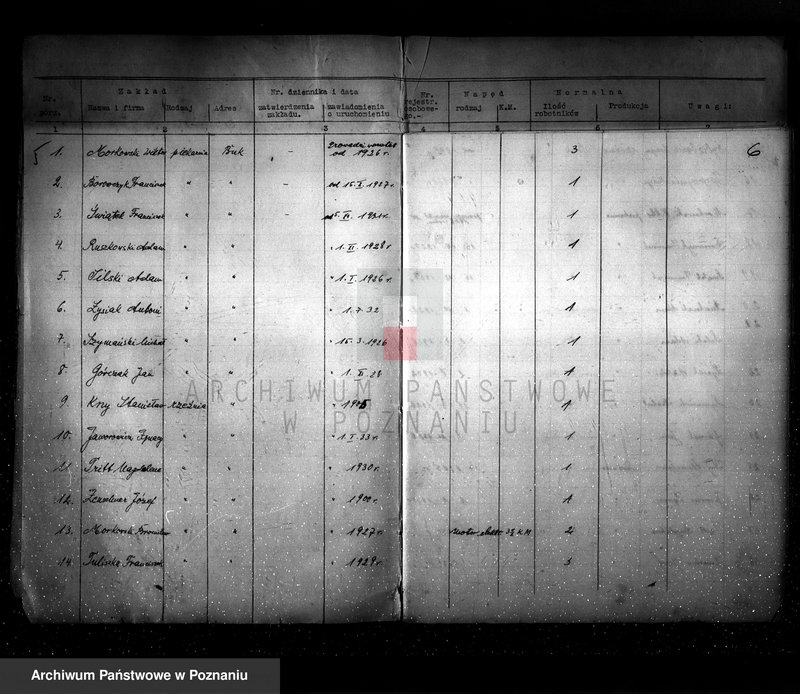 Zakład Nr. dziennika i data Nr. rejestr. osobowe- go.- Napęd Normalna Uwagi:
Nr. porz. Nazwa i firma Rodzaj Adres zatwierdzenia zakładu. zawiadomienia o uruchomieniu rodzaj K.M. Ilość robotników Produkcja
1 2 3 4 5 6 7
1. Morkowski piekarnia Buk od 1936 r. 3 6
2. Borowczyk Franciszek " " - od 15.X.1927 r. 1
3. Świątek Franciszek " " - 1931 r. 1
4. Ruszkowski Adam " " " 1.II.1928 r 1
5. Tilski Adam " " " 1.X.1926 r. 1
6. Łysiak Antoni " " " 1.7.32 1
7. Szymański Michał " " " 15.3.1926 1
8. Górczak Jan " " " 1.II.28 1
9. Kny Stanisław rzeźnia " " 1905 1
10. Jaworowicz Ignacy " " " 1.I.33 r. 1
11. Tritt Magdalena " " " 1930 r. 1
12. Józef " " " 1900 r. 1
13. Morkowski Bronisław " " " 1927 r. motor elektr. 3½ KM 2
14. Tuliszka Franciszek " " " 1929 r. 3
ARCHIWUM PAŃSTWOWE
W POZNANIU
Archiwum Państwowe w Poznaniu